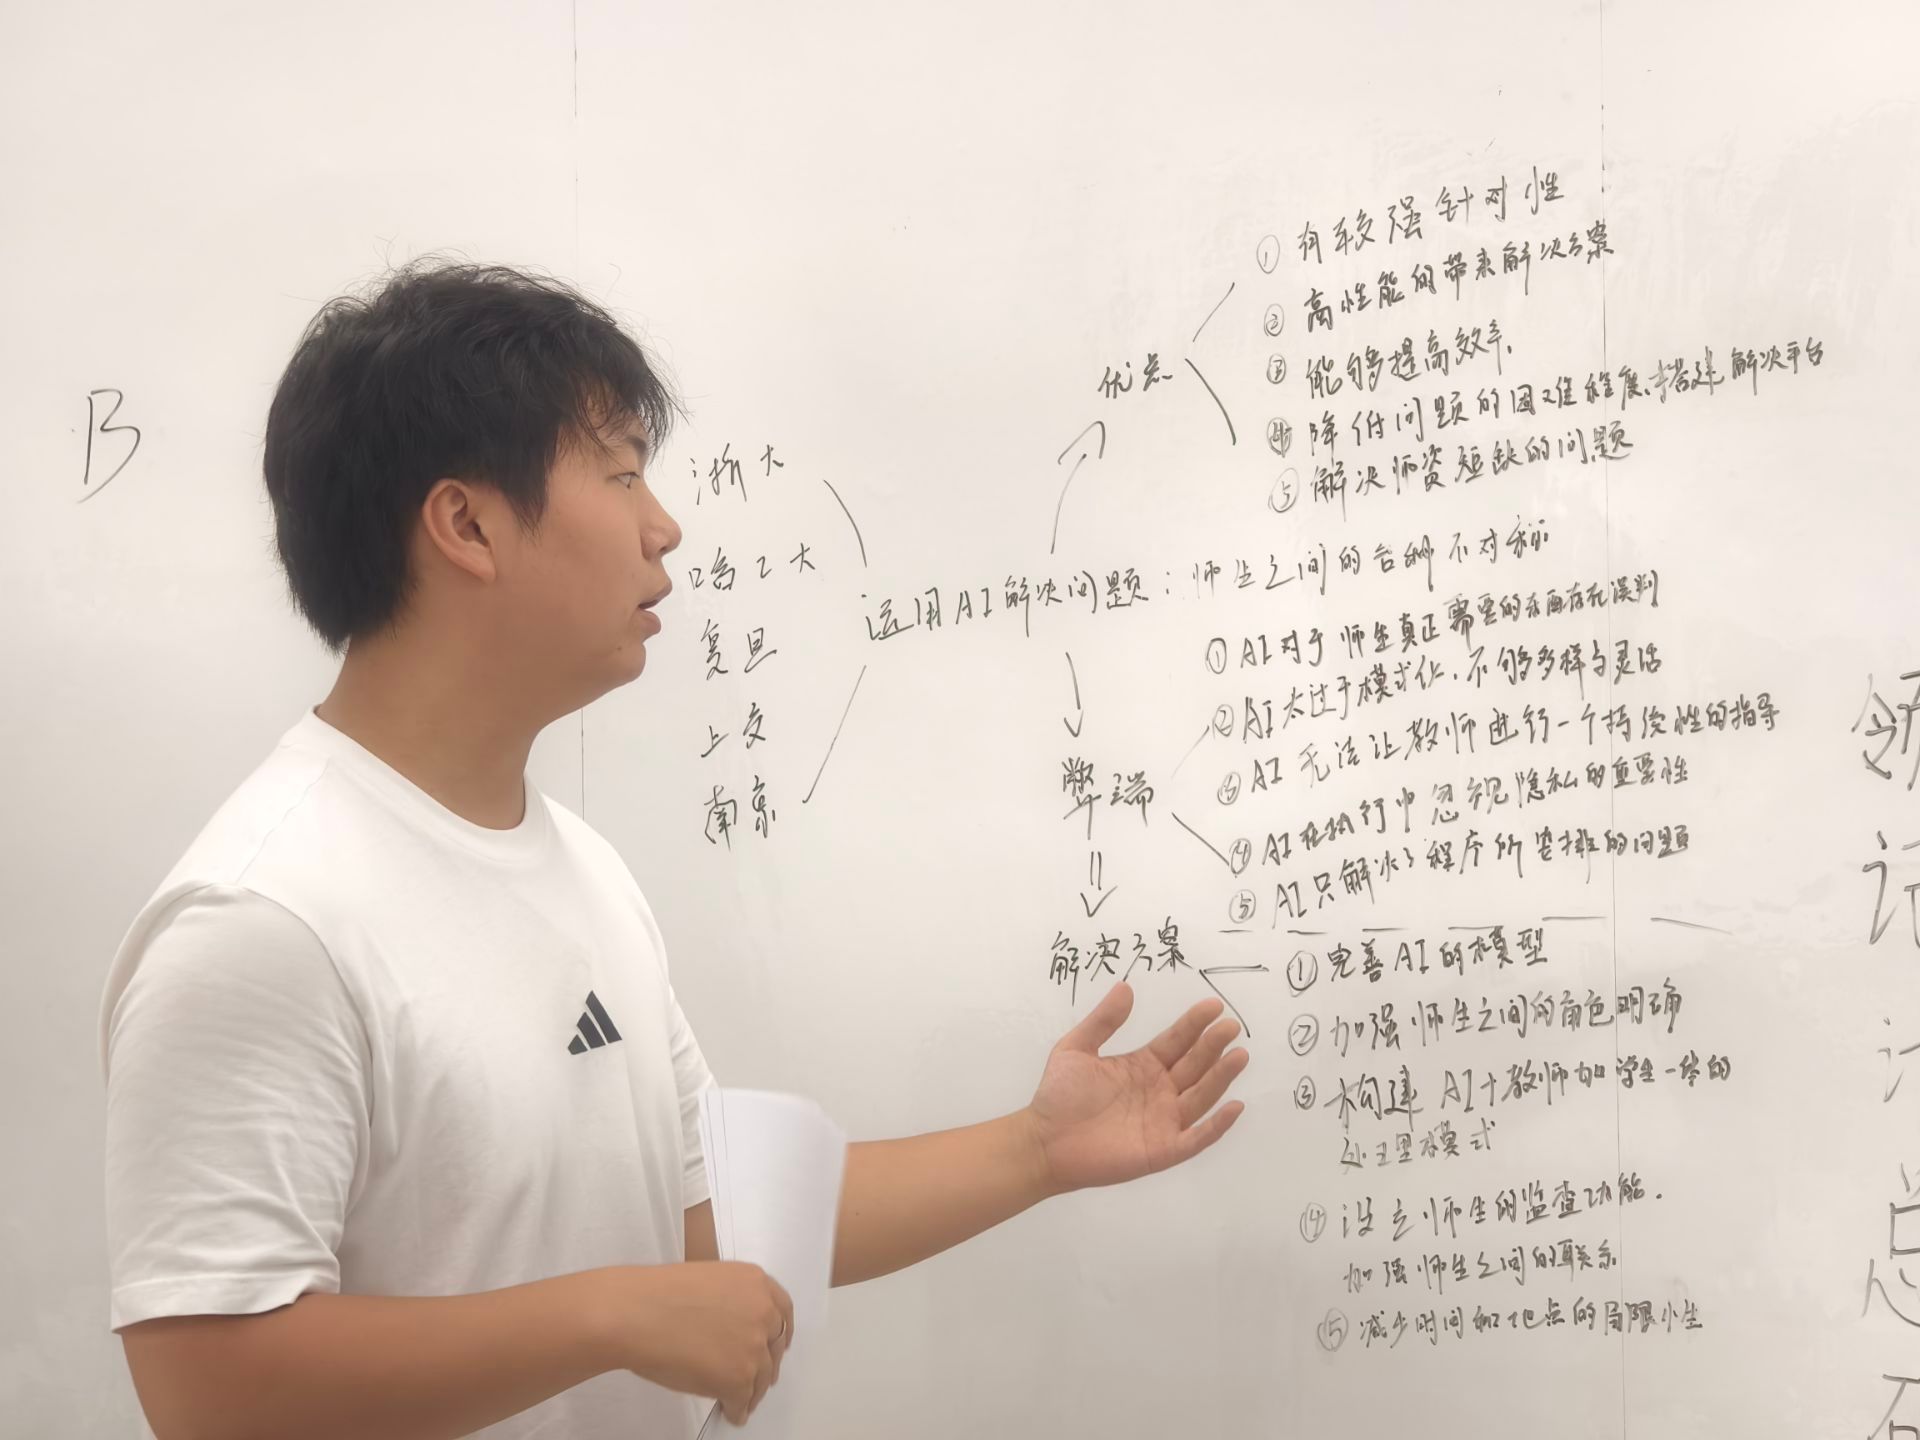 B
浙大
哈工大
复旦
上交
南京
运用AI解决问题：师生之间的 不对称
优点
① 有较强针对性
② 高性能的带来解决方案
③ 能够提高效率.
④ 降低问题的困难程度.搭建解决平台
⑤ 解决师资短缺的问题
弊端
① AI对于师生真正需要的东西存在误判
② AI太过于模式化.不够多样与灵活
③ AI无法让教师进行一个持续性的指导
④ AI在执行中忽视隐私的重要性
⑤ AI只解决了程序所安排的问题
解决方案
① 完善AI的模型
② 加强师生之间的角色明确
③ 构建AI+教师加学生一体的
处理模式
④ 设立师生的监查功能.
加强师生之间的联系
⑤ 减少时间和地点的局限性